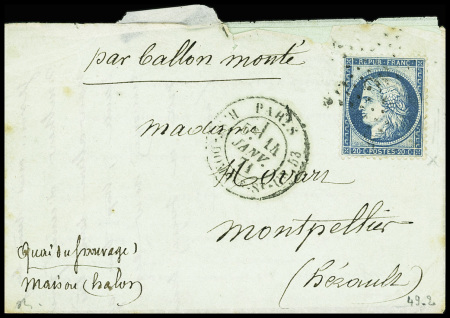 par ballon monté
REPUB. FRANC.
20 C POSTES 20 C
PARIS
14
JANV.
71
Madame
Hovart
Montpellier
(hérault)
Quai du
Maison Chalon
49.2